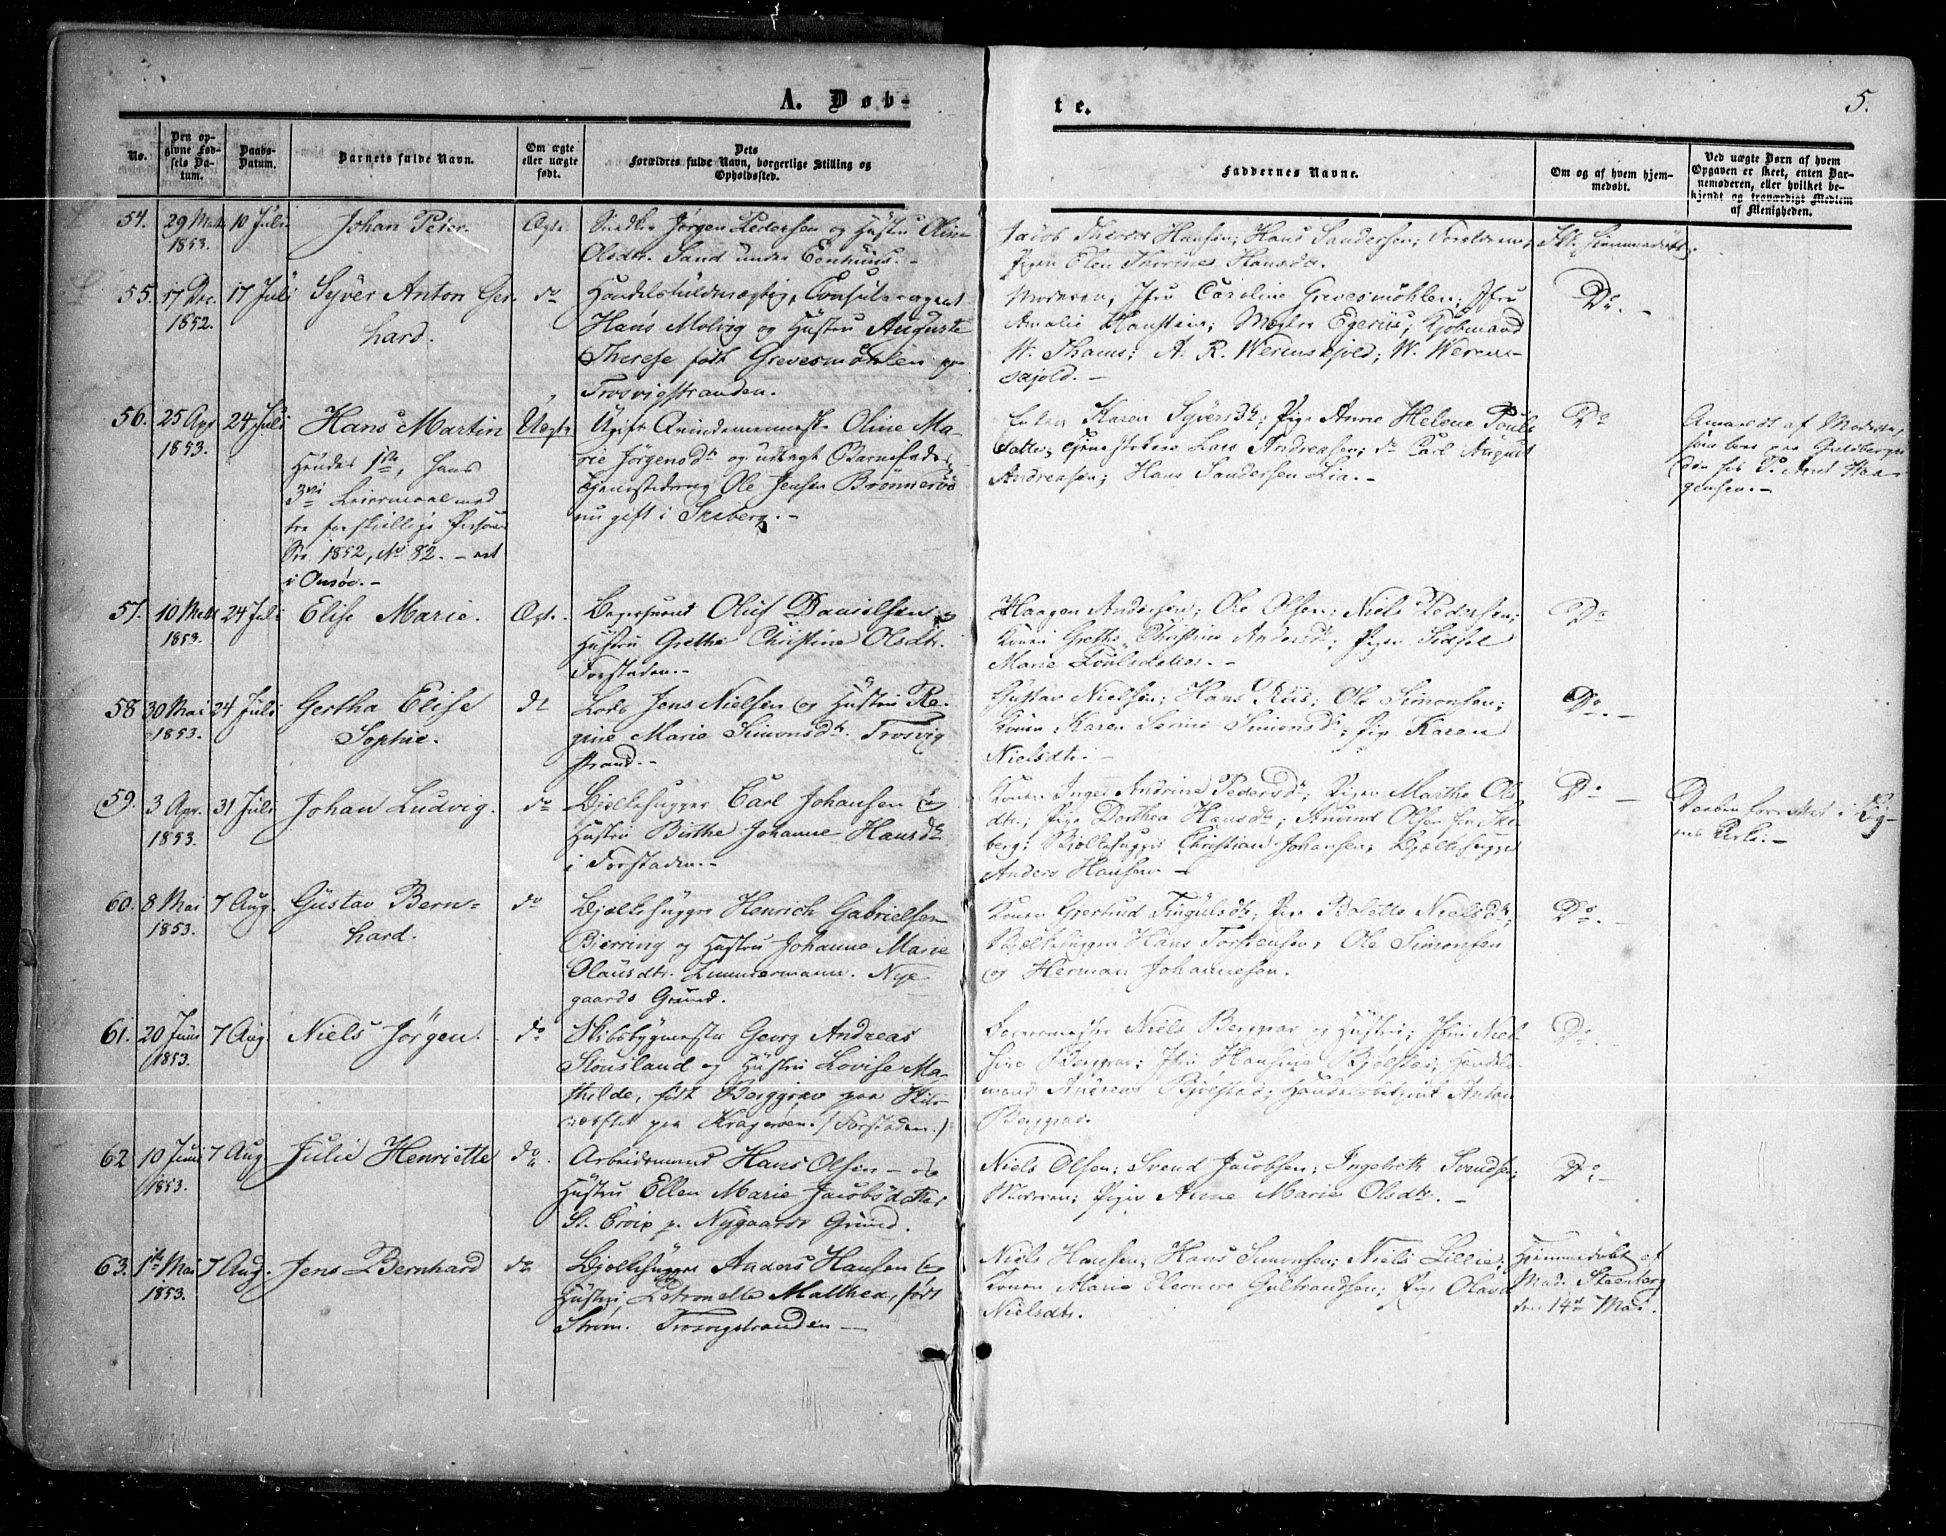 A. Døb-
te.
5.
No.
Den op-
givne Fød-
sels Da-
tum.
Daabs-
Datum.
Barnets fulde Navn.
Om ægte
eller uægte
født.
Dets
Forældres fulde Navn, borgerlige Stilling og
Opholdssted.
Faddernes Navne.
Om og af hvem hjem-
medøbt.
Ved uægte Børn af hvem
Opgaven er skeet, enten Bar-
nemoderen, eller hvilket be-
kjendt og troværdigt Medlem
af Menigheden.
54.
29
1853.
10 Juli
Johan Peter.
Ægte
Jørgen Pedersen og Hustru Oline
Olsdtr. Sand under
Jacob Theodor Hansen; Hans Sandersen; Forældrene;
Pigen Elen Thorine Hansdtr.
55.
17 Dec.
1852.
17 Juli
Syver Anton Ger-
hard.
do
Handelsfuldmægtig, Consulatagent
Hans Molvig og Hustru Auguste
Therese født Grevesmøhlen
Trosvigstranden.
Moderen, Jfru Caroline Grevesmøhlen; Jfru
Amalie Hanstein; Egerius; Kjøbmand
W. Thams; A. R. Werenskjold; W. Weren-
skjold.
Do.
56.
25 Apr
1853.
24 Juli
Hans Martin
Hendes 1ste, hans
3die Leiermaal med
tre forskjellige
1852, No 82.
i Onsøe.
Uægte
Ugift Qvindemenneske Oline Ma-
rie Jørgensdtr og udlagt Barnefader
Ole Jensen Brønnerød
nu gift i Skeberg.
Karen Syversdtr; Pige Anne Helene Pouls
datter; Lars Andreasen; do Carl August
Andreasen; Hans Sandersen Lia.
Do
Anmeldt af Moderen,
57.
10
1853.
24 Juli
Elise Marie.
Ægte.
Oluf Danielsen og
Hustru Grethe Christine Olsdtr.
Forstaden.
Haagen Andersen; Ole Olsen; Niels Pedersen;
Konen Grethe Christine Andersdtr; Pigen Sidsel
Marie Poulsdatter.
Do
58
30 Mai
1853.
24 Juli
Gertha Elise
Sophie.
do
Lods Jens Nielsen og Hustru Re-
gine Marie Simonsdtr. Trosvig
strand.
Gustav Nielsen; Hans Riis; Ole Simonsen;
Konen Karen Simonsdtr; Pige Karen
Nielsdtr.
Do.
59.
3 Apr.
1853.
31 Juli
Johan Ludvig.
do
Bjælkehugger Carl Johansen og
Hustru Birthe Johanne Hansdtr
i Forstaden.
Konen Inger Andrine Pedersdtr; Pigen Marthe Ols
dtr; Pige Dorthea Hansdtr; Amund Olsen fra Ske-
berg; Bjælkehugger Christian Johansen; Bjælkehugger
Anders Hansen.
Do
60.
8 Mai
1853.
7 Aug.
Gustav Bern-
hard.
do
Bjælkehugger Henrich Gabrielsen
Bjerring og Hustru Johanne Marie
Olausdtr. Zimmermann. Nye
gaards Grund.
Konen Gjertrud Pige Bolette Nielsdtr;
Bjælkehugger Hans Torstensen, Ole Simonsen
og Herman Johannesen.
Do.
61.
20 Juni
1853.
7 Aug.
Niels Jørgen.
do
Skibsbygmester Georg Andreas
Stousland og Hustru Lovise Ma-
thilde, født Berggrav paa Skibs
værftet paa Kragerøen. (Forstaden.)
Niels Berggrav og Hustru; Jfru Niel-
sine Berggrav; Jfru Hansine Bjølstad; Handels-
mand Andreas Bjølstad; Handelsbetjent Anton
Berggrav.
Do
62
10 Juni
1853.
7 Aug
Julie Henriette
do.
Arbeidsmand Hans Olsen og
Hustru Ellen Marie Jacobsdatter
St. Croix p. Nygaards Grund.
Niels Olsen; Svend Jacobsen; Ingebreth Svendsen;
Moderen; Pigen Anne Marie Olsdtr.
Do
63.
1ste Mai
1853.
7 Aug.
Jens Bernhard
do
Bjælkehugger Anders Hansen og
Hustru Petronelle Matthea, født
Strøm. Trosvigstranden
Niels Hansen; Hans Simonsen; Niels Lillie;
Konen Marie Eleonore Gulbrandsen; Pige Olava
Nielsdtr.
Hjemmedøbt af
Mad. Steenberg
den 14de Mai.